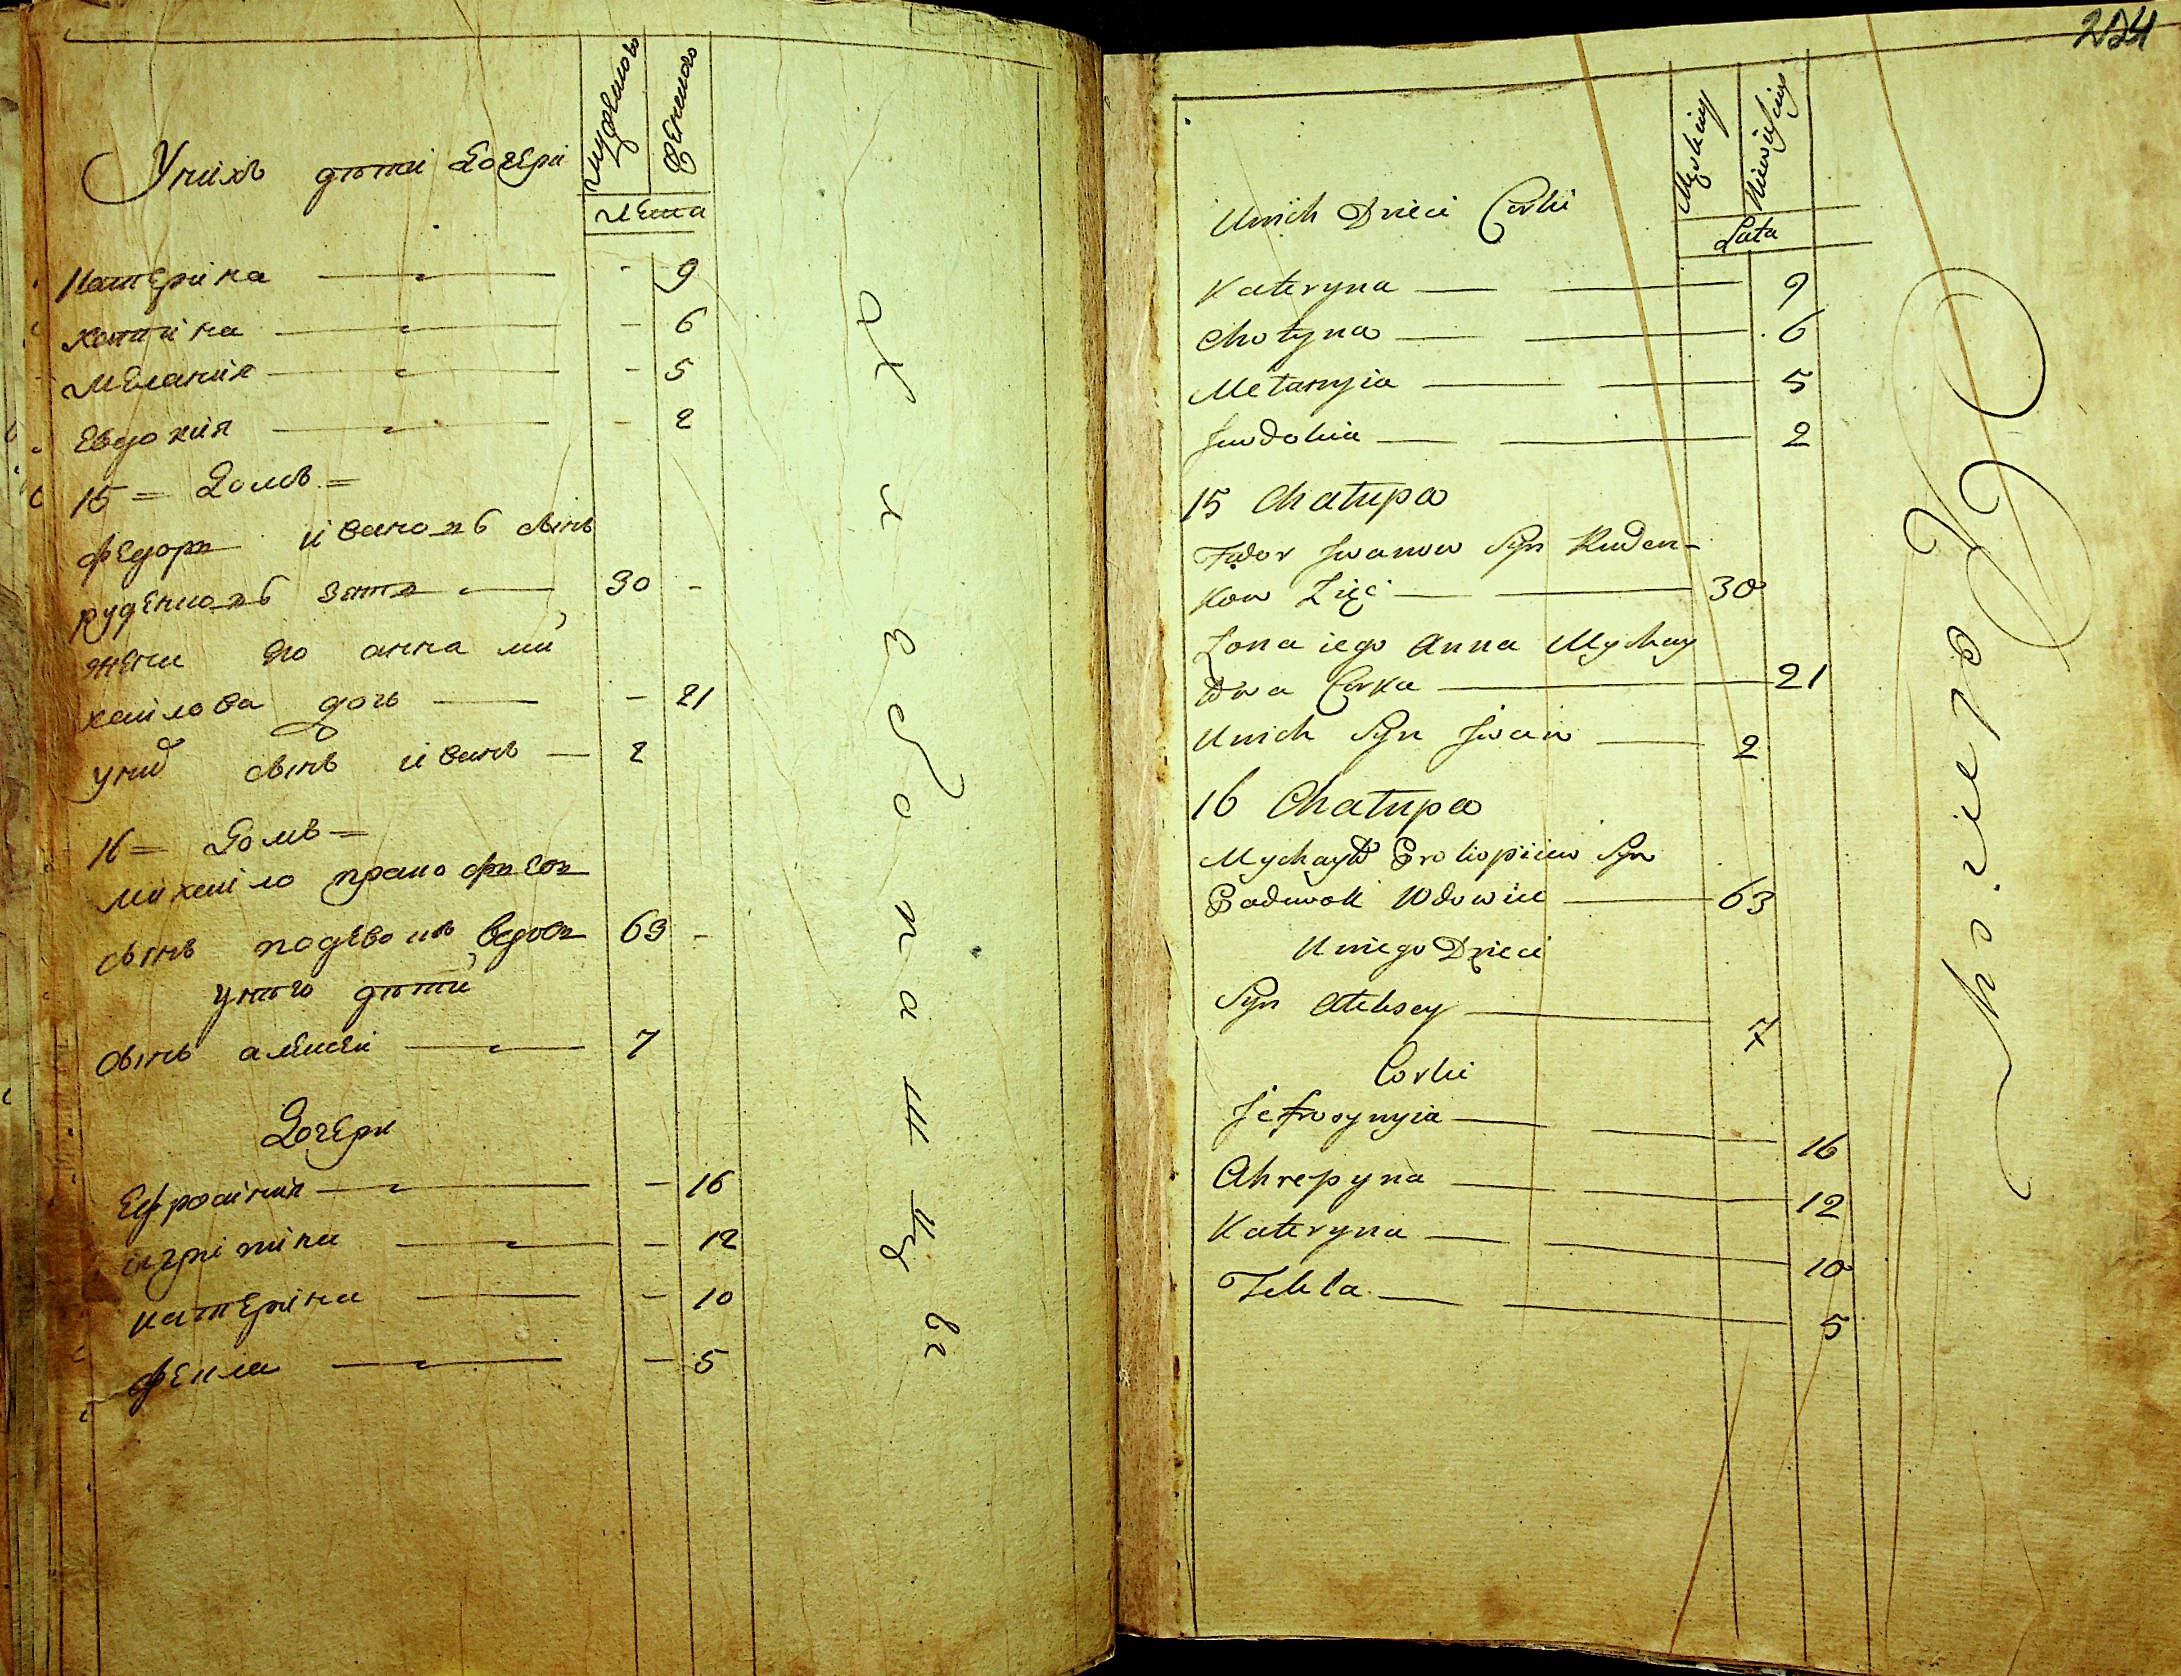 Унихъ дѣти Дочери
мужеска
женска
Лета
Катерина 9
хотина 6
Мелания 5
Евдокия 2
15 = Домъ =
Федоръ ивановъ сынъ
руденковъ зять 30
жена его анна ми
хаилова дочь 21
унид сынъ иванъ 2
16 = Домъ =
михаило прокофиевъ
сынъ подевокъ вдовъ 63
унѣго дѣти
сынъ алексеи 7
Дочери
Ефросиния 16
агрипина 12
катерина 10
фекла 5
204
Męskiey
Niewiesciey
Unich Dzieci Corki
Lata
Kateryna 9
Chotyna 6
Mełanyia 5
Jewdokia 2
15 Chałupa
Fedor Jwanow Syn Ruden-
kow Zięć 30
Zona iego Anna Mychay
łowa Corka 21
Unich Syn Jwan 2
16 Chałupa
Mychayło Prokopiiew Syn
Padewok Wdowiec 63
Uniego Dzieci
Syn Ałeksey 7
Corki
Jefrosynyia 16
Ahrepyna 12
Kateryna 10
Tekla 5